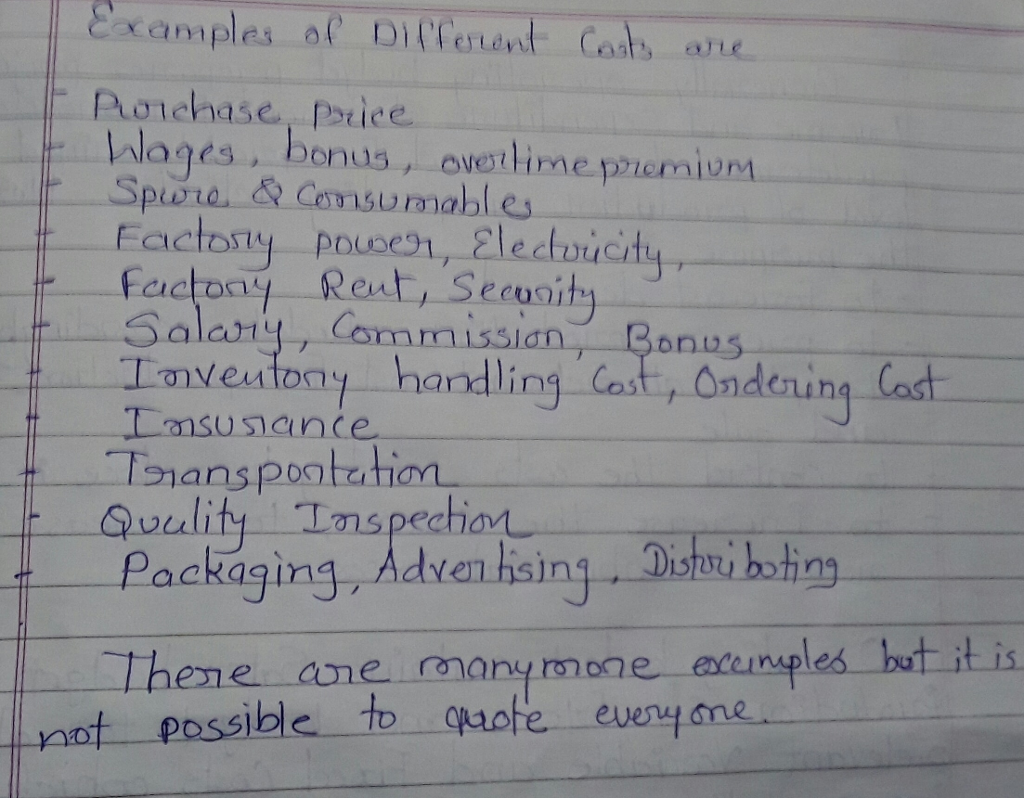 Examples of Different Costs are
- Purchase price
- Wages, bonus, overtime premium
- Spare & Consumables
- Factory power, Electricity,
- Factory Rent, Security
- Salary, Commission, Bonus
- Inventory handling Cost, Ordering Cost
- Insurance
- Transportation
- Quality Inspection
- Packaging, Advertising, Distributing
There are many more examples but it is
not possible to quote everyone.